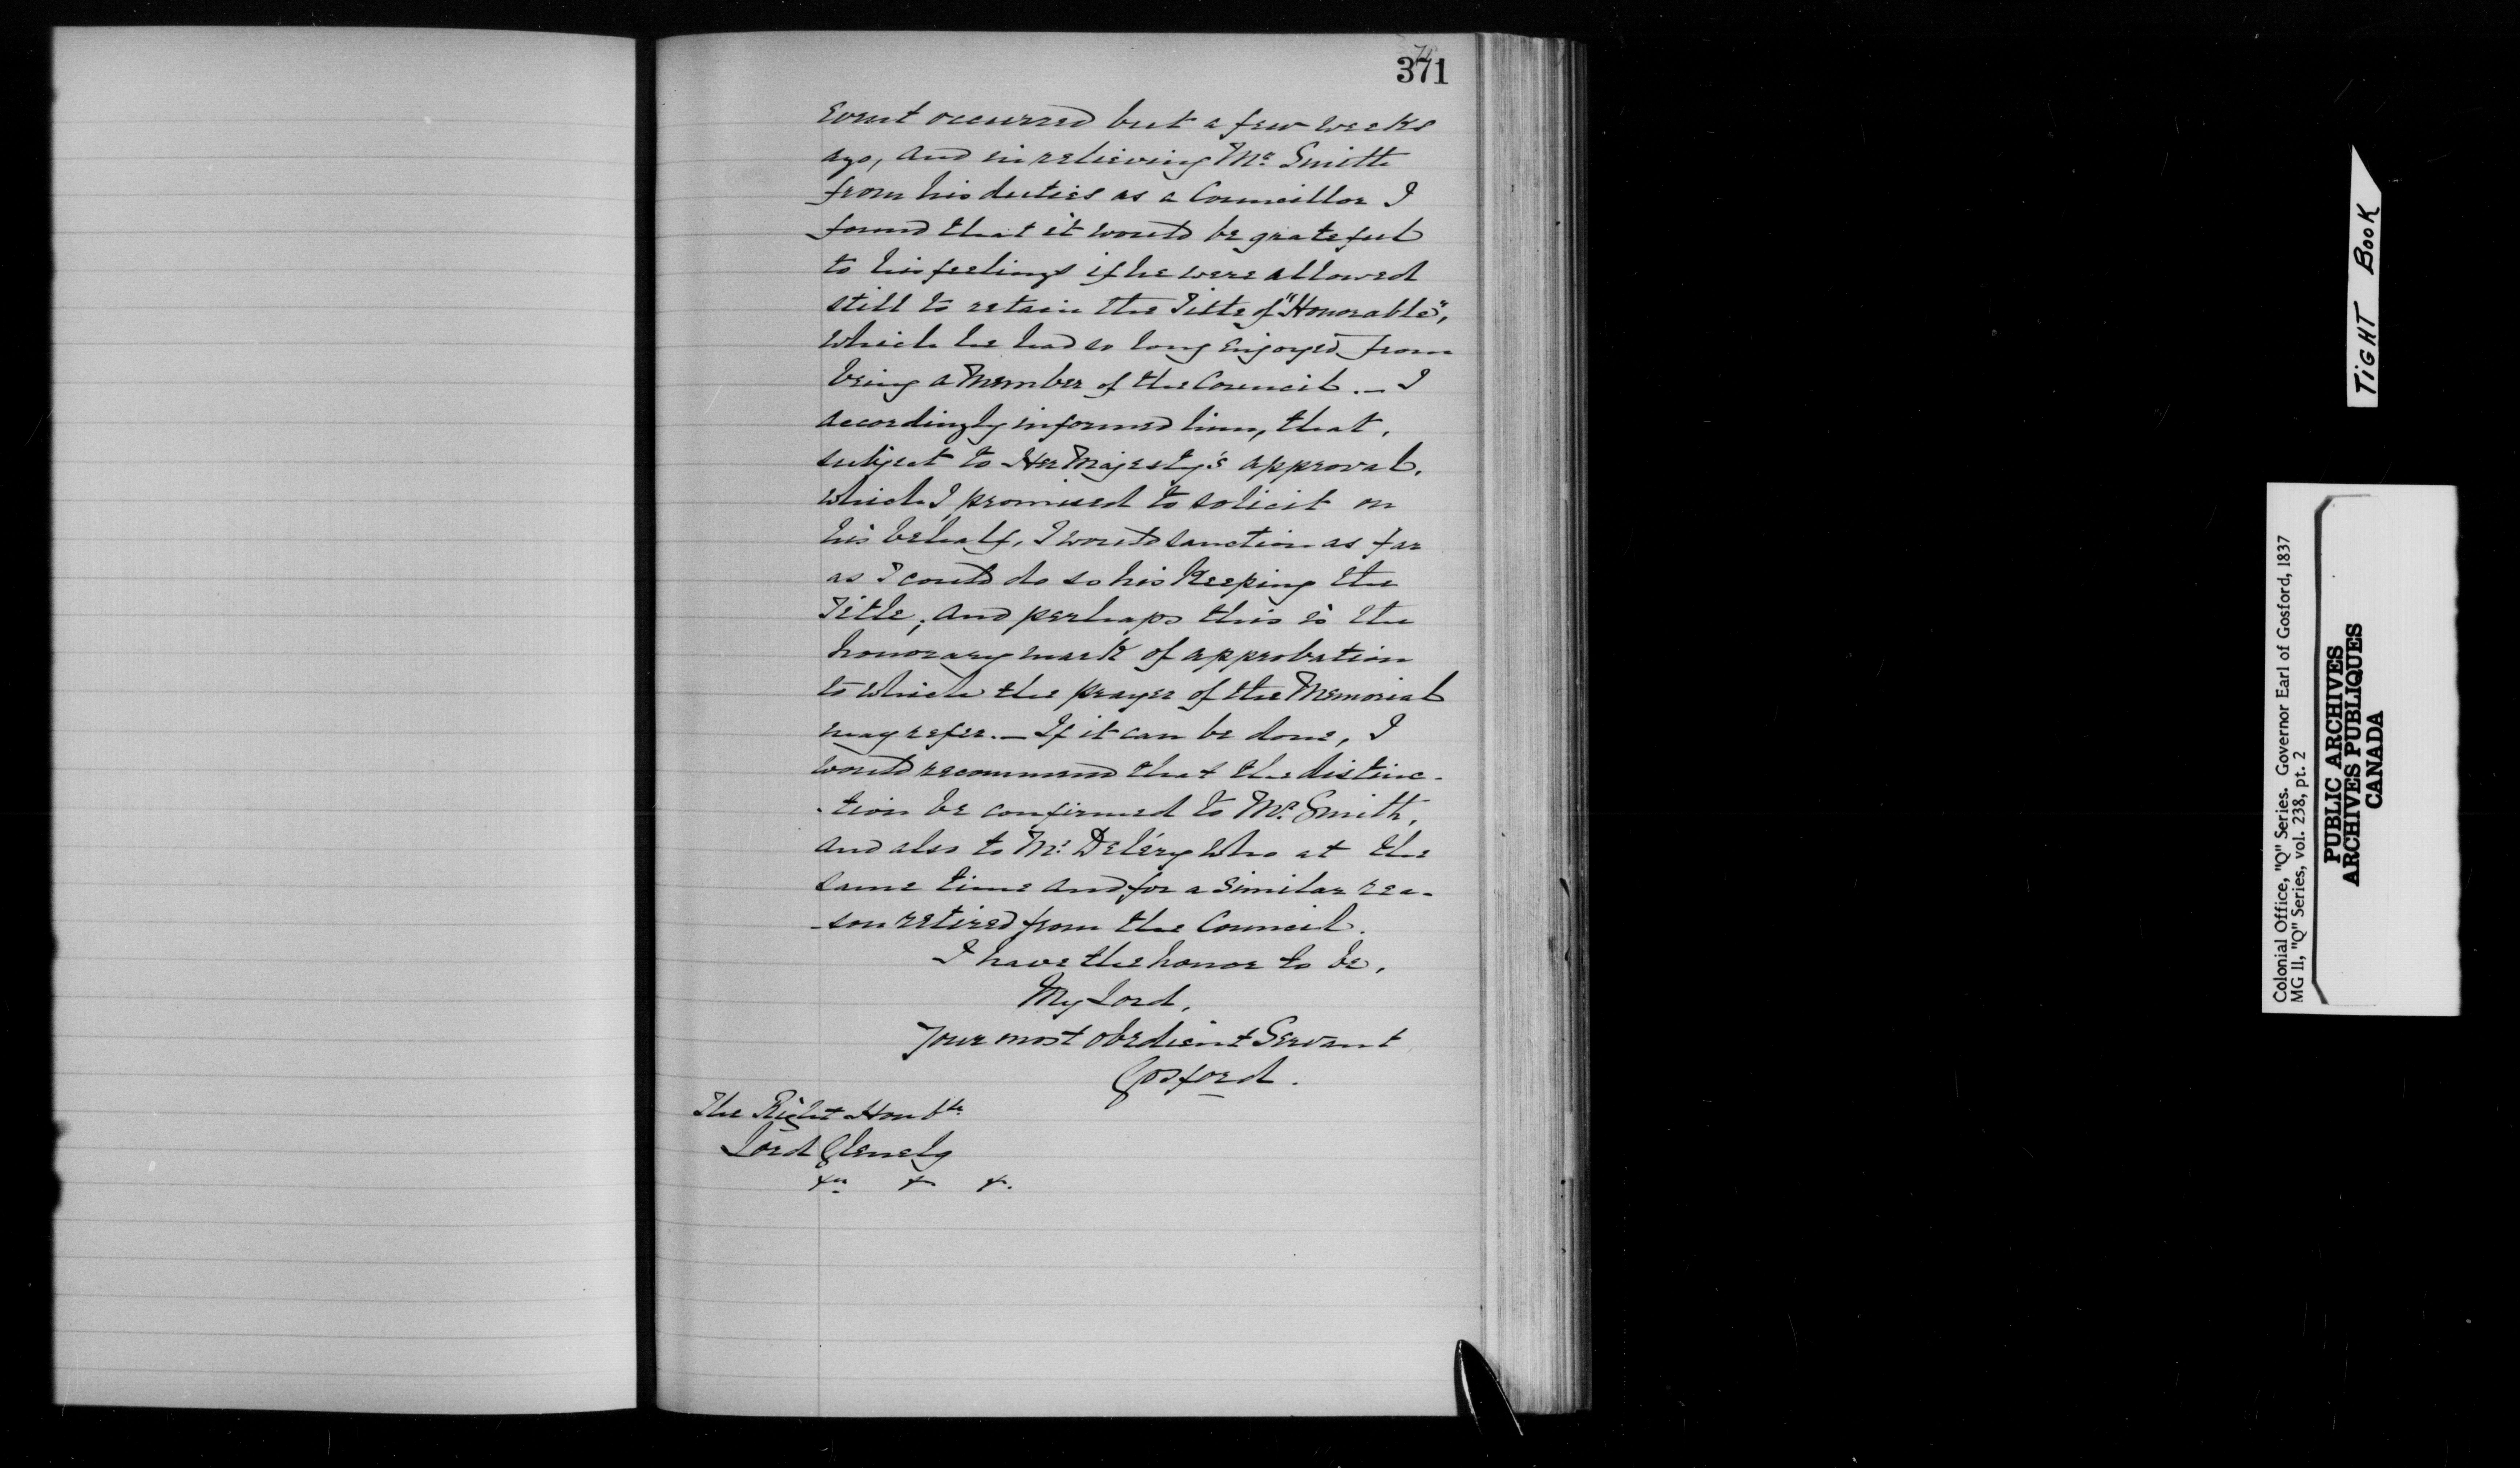 371
Event occurred but a few weeks
ago, and in relieving Mr. Smith
from his duties as a Councillor I
found that it would be grateful
to his feelings if he were allowed
still to retain the Title of "Honorable",
which he had so long enjoyed from
being a Member of the Council. — I
accordingly informed him, that,
subject to Her Majesty's approval,
which I promised to solicit on
his behalf, I would sanction as far
as I could do so his Keeping the
Title; and perhaps this is the
honorary mark of approbation
to which the prayer of the Memorial
may refer. — If it can be done, I
would recommend that the distinc-
-tion be confirmed to Mr. Smith,
and also to Mr. Deléry who at the
same time and for a similar rea-
-son retired from the Council.
I have the honor to be,
My Lord,
Your most obedient Servant
Gosford.
The Right Honble
Lord Glenelg
&c & &.
TIGHT BOOK
Colonial Office, "Q" Series. Governor Earl of Gosford, 1837
MG 11, "Q" Series, vol. 238, pt. 2
PUBLIC ARCHIVES
ARCHIVES PUBLIQUES
CANADA